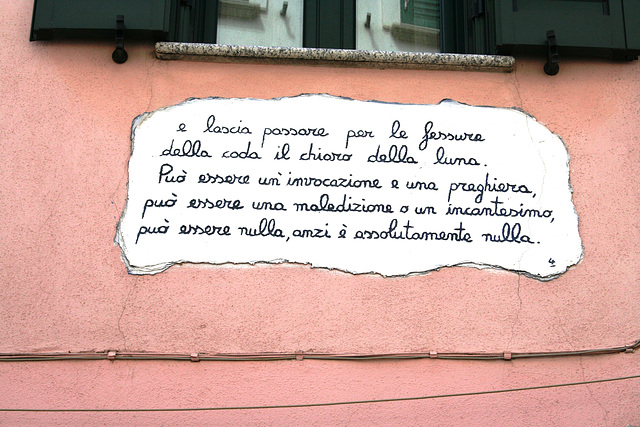 e lascia passare per le fessure
della coda il chiaro della luna.
Può essere un'invocazione e una preghiera,
può essere una maledizione o un incantesimo,
può essere nulla, anzi è assolutamente nulla.
4